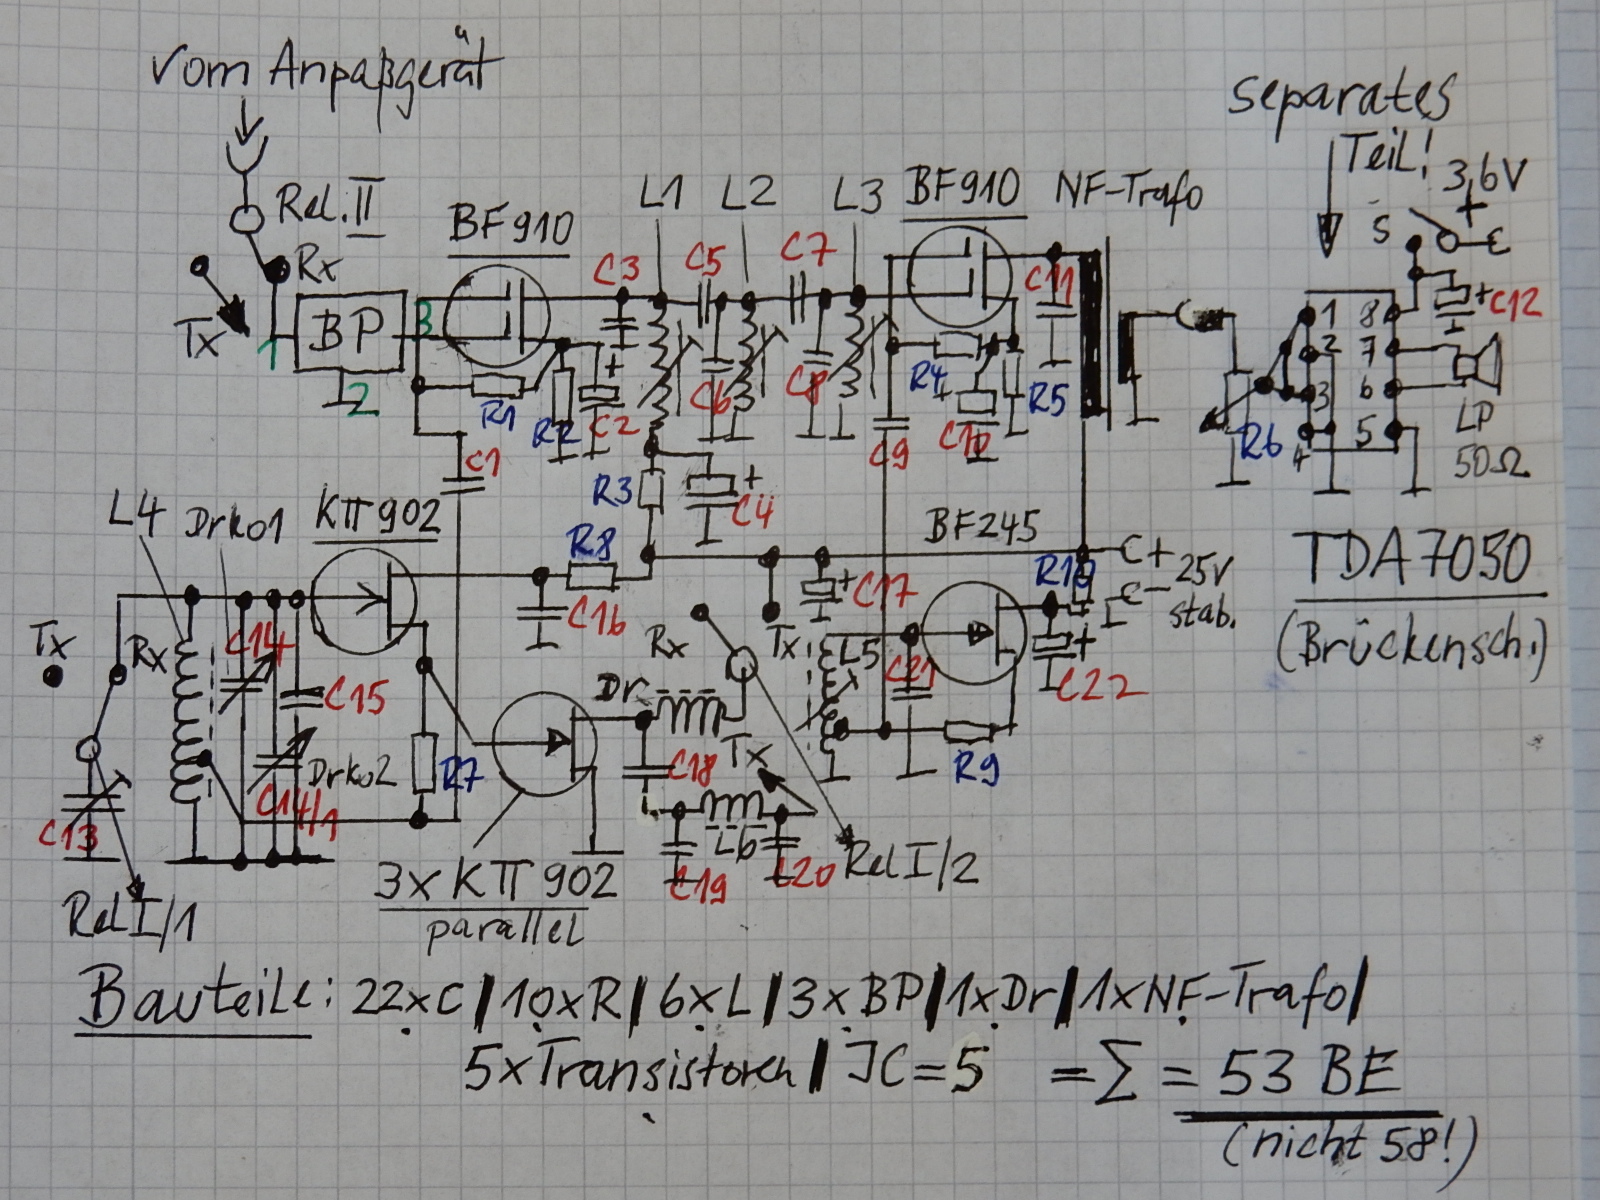 Vom Anpaßgerät
separates
Teil!
3,6V
+
S
Rel. II
Rx
Tx
BF910
L1
L2
L3
BF910
NF-Trafo
C3
C5
C7
C11
+
C12
1
BP
3
2
R1
R2
+
C2
C6
C8
R4
+
C10
R5
C9
R6
1
2
3
4
8
7
6
5
LP
50Ω
C1
R3
+
C4
L4
Drko1
KП902
R8
BF245
+
-
25V
stab.
TDA7050
(Brückensch.)
Tx
Rx
C14
C15
C16
Rx
Tx
+
C17
L5
C21
R10
+
C22
Dr
C18
Tx
R9
C13
Drko2
C14/1
R7
L6
C19
C20
Rel I/2
Rel I/1
3x KП902
parallel
Bauteile: 22xC | 10xR | 6xL | 3x BP | 1xDr | 1xNF-Trafo |
5xTransistoren | JC=5 =Σ = 53 BE
(nicht 58!)